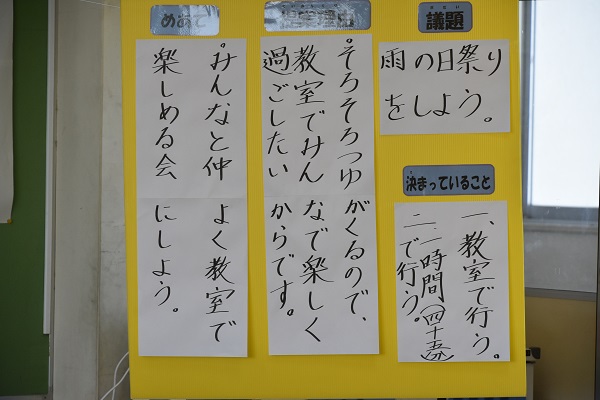 議題
雨の日祭り
をしよう。
決まっていること
一、教室で行う。
二、一時間(四十五分)
で行う。
提案理由
。そろそろつゆがくるので、
教室でみんなで楽しく
過ごしたいからです。
めあて
。みんなと仲よく教室で
楽しめる会にしよう。